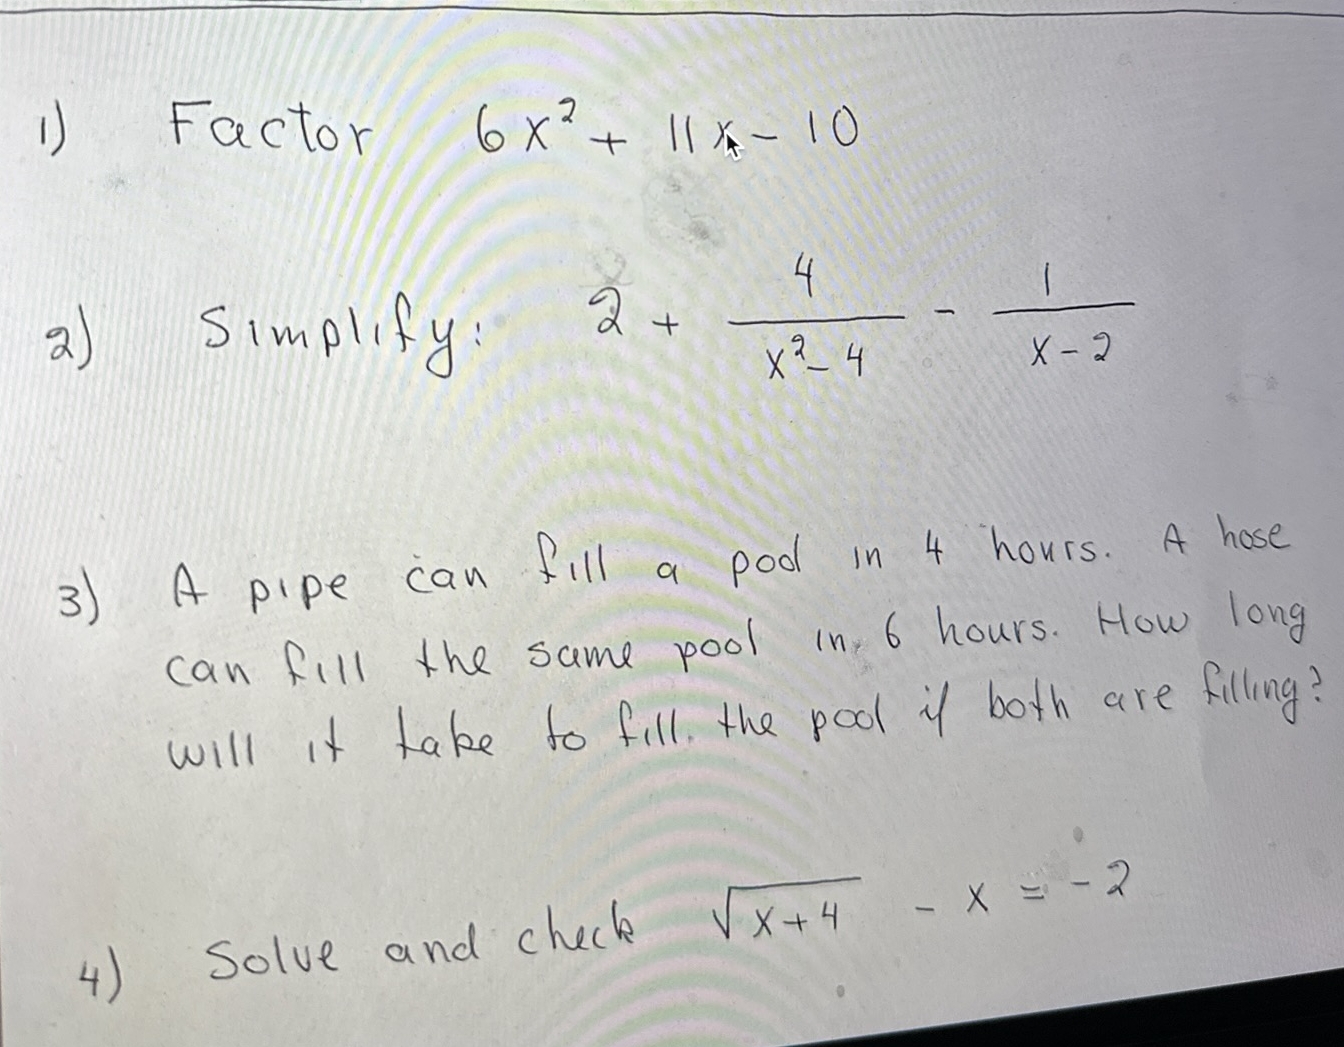 1) Factor 6x² + 11x - 10
2) Simplify: 2 + 4/(x² - 4) - 1/(x - 2)
3) A pipe can fill a pool in 4 hours. A hose
can fill the same pool in 6 hours. How long
will it take to fill the pool if both are filling?
4) Solve and check √(x+4) - x = -2